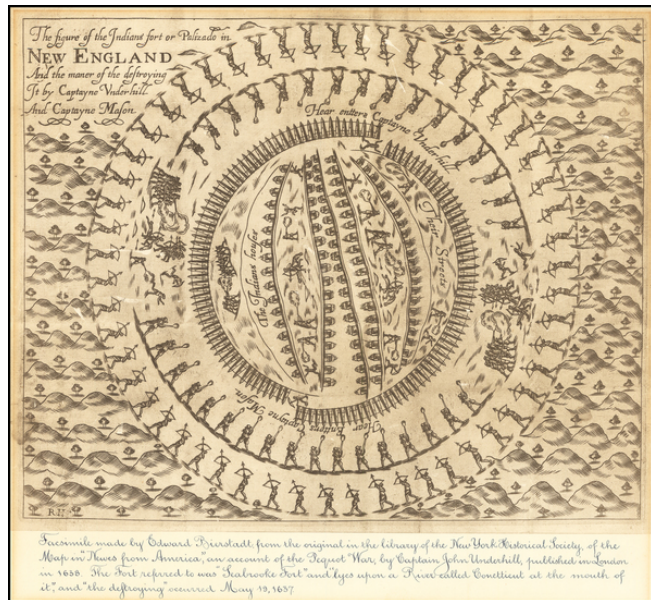 The figure of the Indians fort or Palizado in
NEW ENGLAND
And the maner of the destroying
It by Captayne Vnderhill
And Captayne Mason
Hear entters Captayne Vnderhill
Their Streets
The Indians houses
Hear Entters Captayne Mason
RH
Facsimile made by Edward Bierstadt, from the original in the library of the New York Historical Society, of the
Map in "Newes from America", an account of the Pequot War, by Captain John Underhill, published in London
in 1638. The Fort referred to was "Seabrooke Fort" and "lyes upon a River called Conettiuit at the mouth of
it", and "the destroying" occurred May 19, 1637